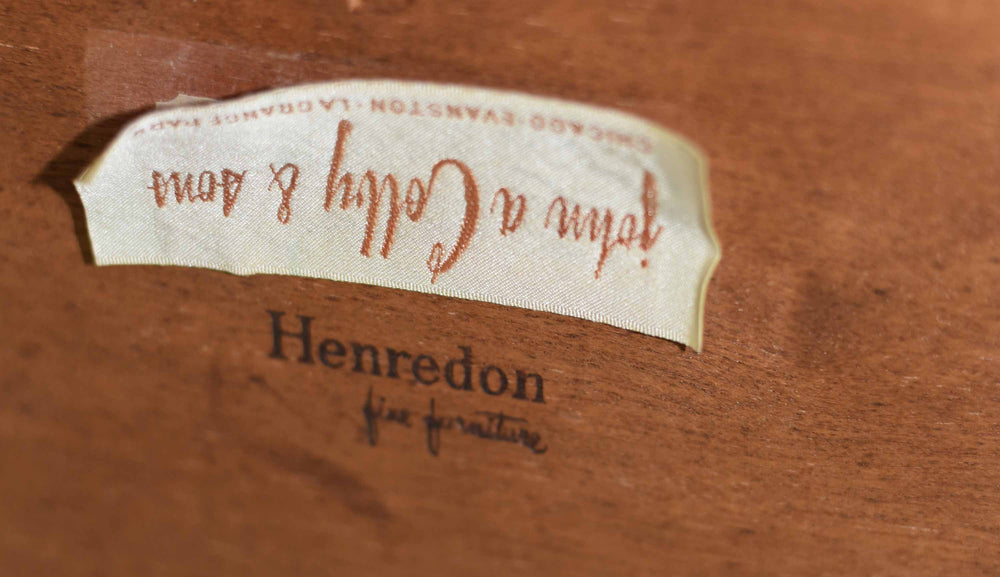 john a Colby & sons
CHICAGO · EVANSTON · LA GRANGE PARK
Henredon
fine furniture